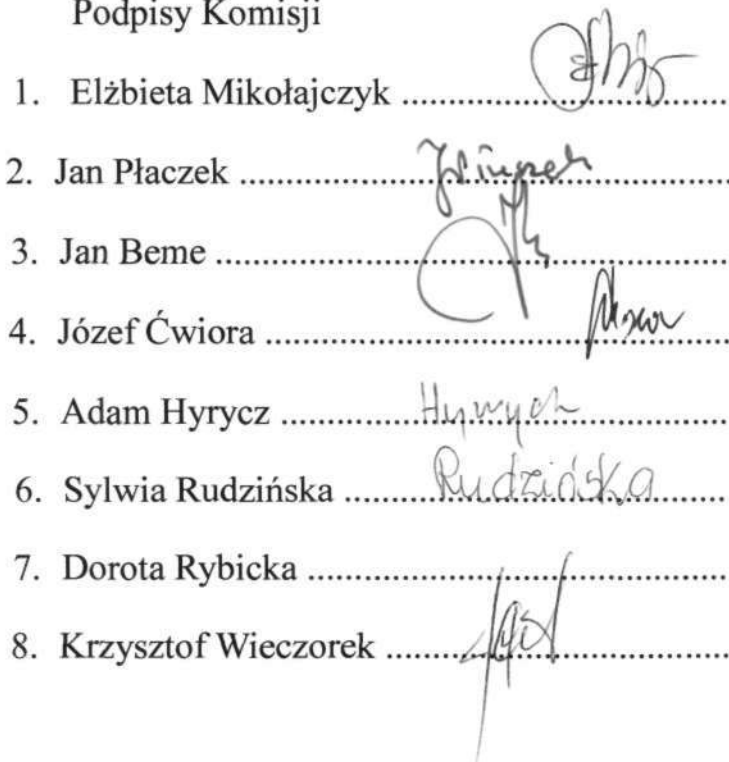 Podpisy Komisji
1. Elżbieta Mikołajczyk ........................................
2. Jan Płaczek ........................................
3. Jan Beme ........................................
4. Józef Ćwiora ........................................
5. Adam Hyrycz ........................................
6. Sylwia Rudzińska ........................................ Rudzińska
7. Dorota Rybicka ........................................
8. Krzysztof Wieczorek ........................................